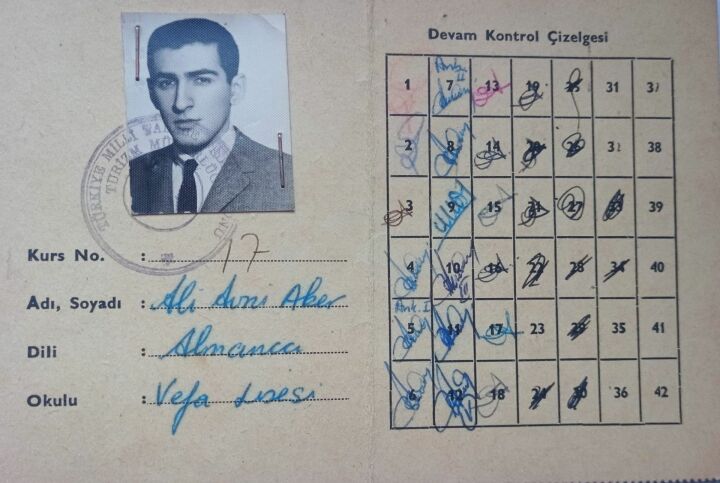 TÜRKİYE MİLLİ
TURİZM
Kurs No. : 17
Adı, Soyadı : Ali Avni Aker
Dili : Almanca
Okulu : Vefa Lisesi
Devam Kontrol Çizelgesi
1 7 13 19 25 31 37
2 8 14 20 26 32 38
3 9 15 21 27 33 39
4 10 16 22 28 34 40
5 11 17 23 29 35 41
6 12 18 24 30 36 42